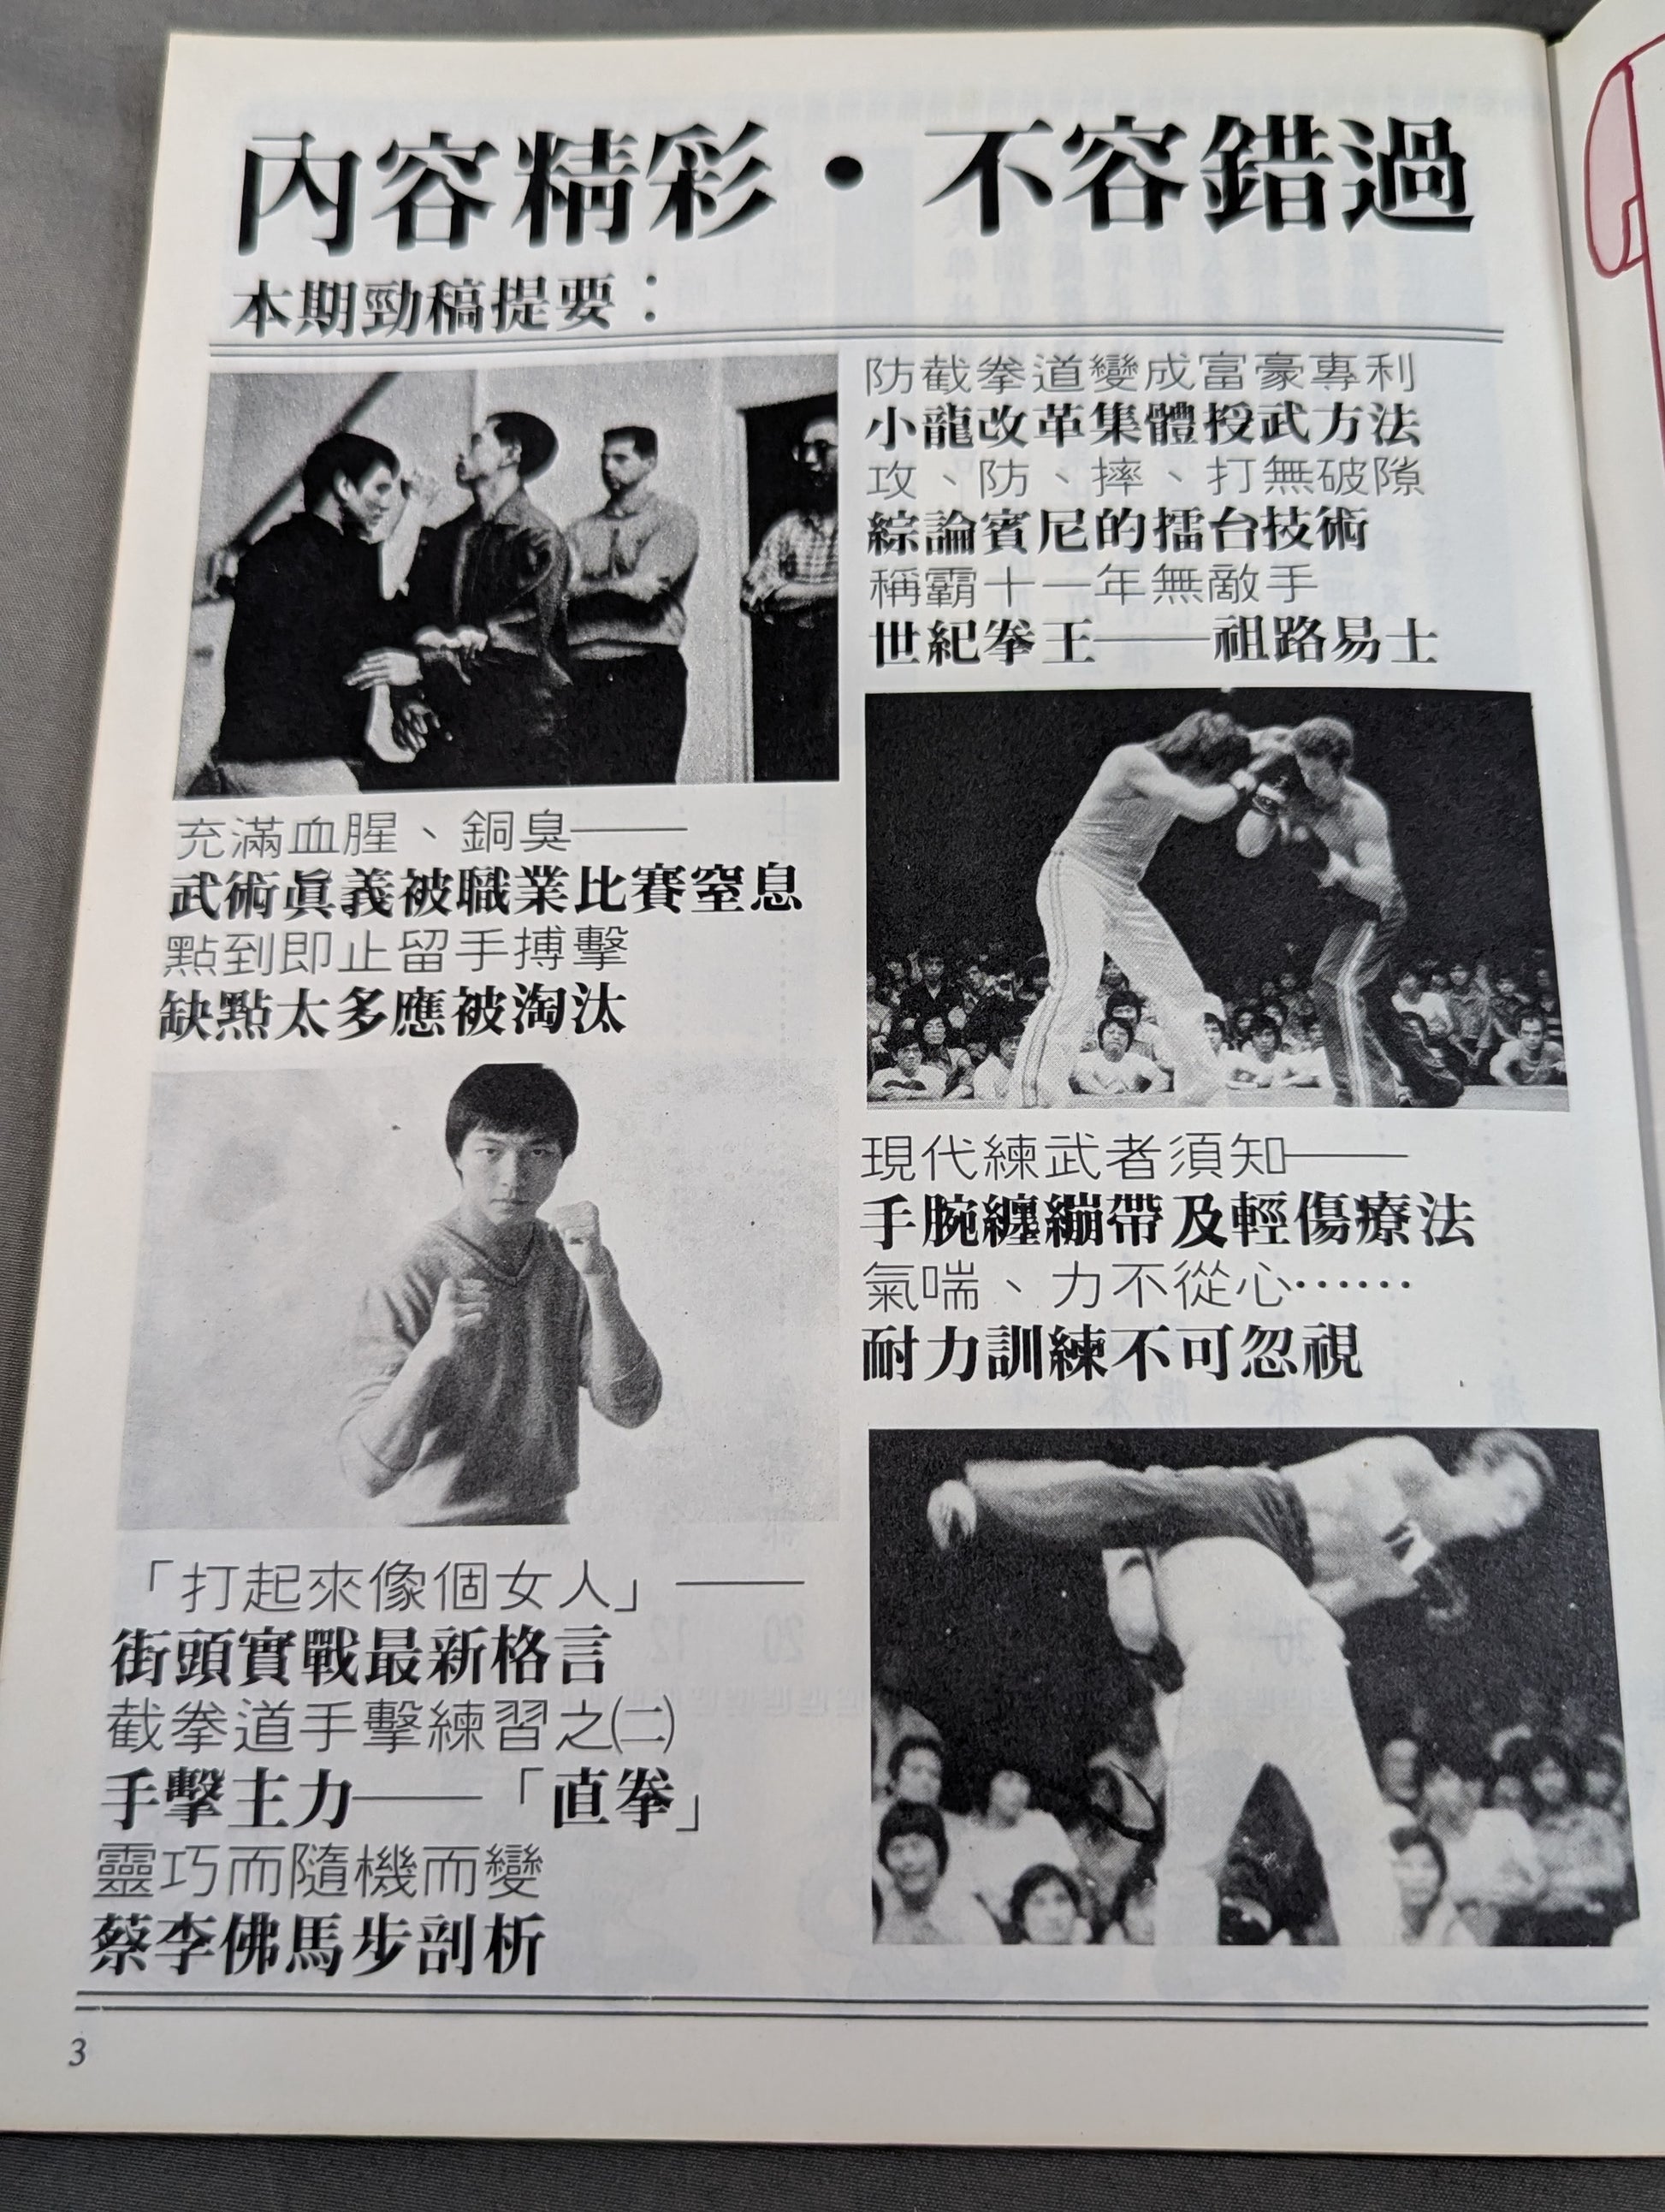 內容精彩・不容錯過
本期勁稿提要：
防截拳道變成富豪專利
小龍改革集體授武方法
攻、防、摔、打無破隙
綜論賓尼的擂台技術
稱霸十一年無敵手
世紀拳王——祖路易士
充滿血腥、銅臭——
武術眞義被職業比賽窒息
點到即止留手搏擊
缺點太多應被淘汰
現代練武者須知——
手腕纏繃帶及輕傷療法
氣喘、力不從心……
耐力訓練不可忽視
「打起來像個女人」——
街頭實戰最新格言
截拳道手擊練習之㈡
手擊主力——「直拳」
靈巧而隨機而變
蔡李佛馬步剖析
3